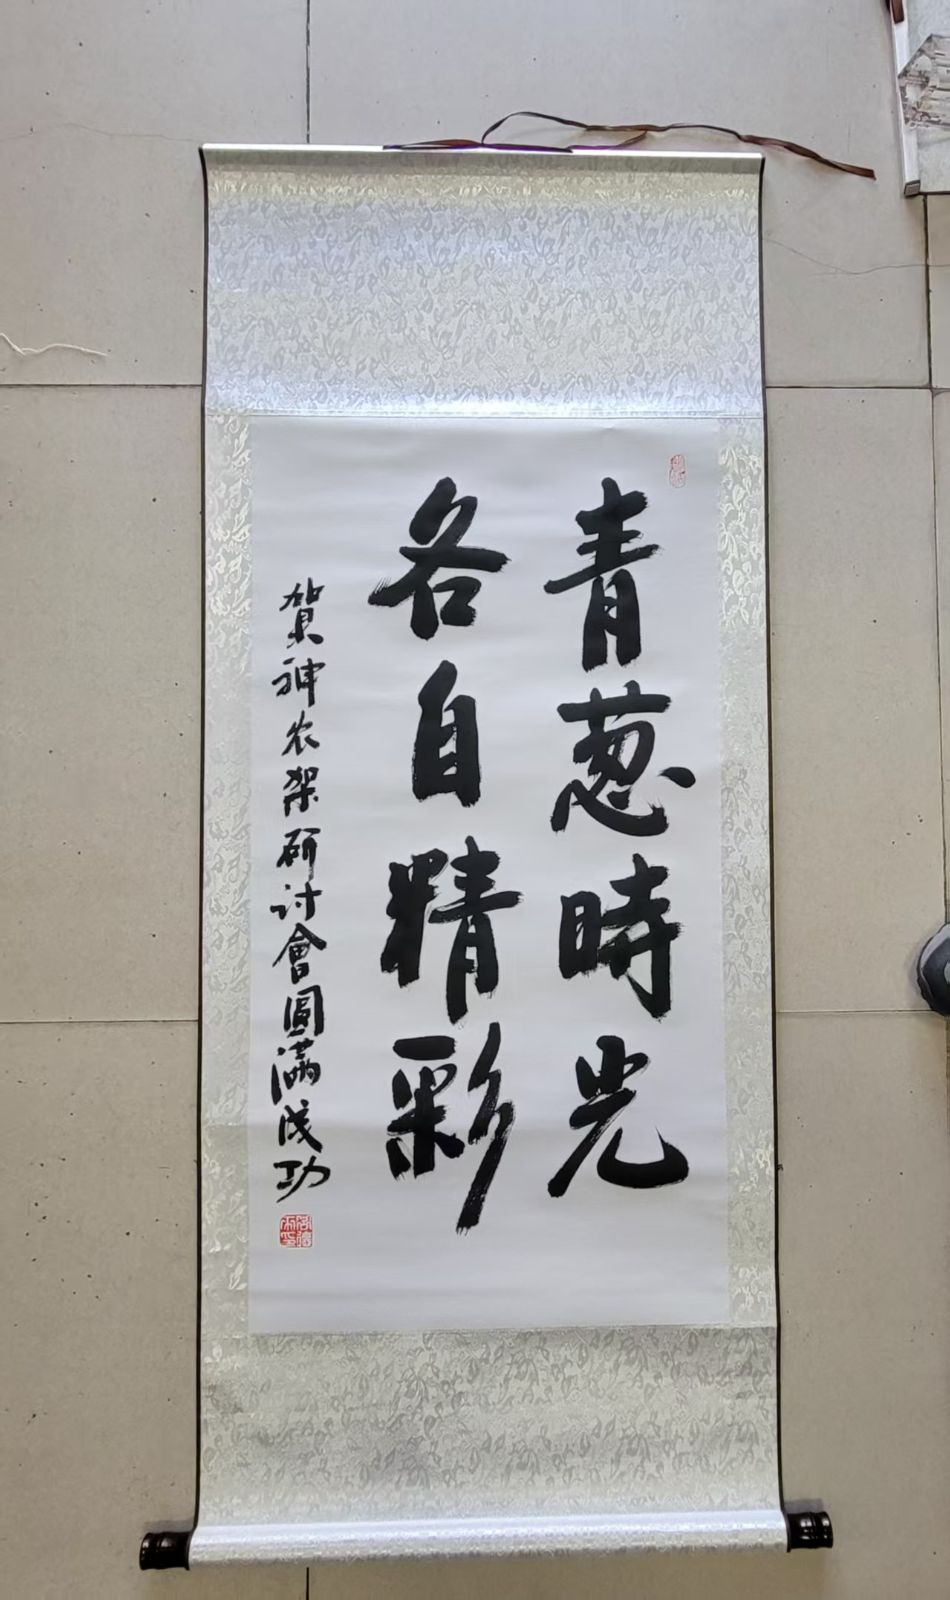 青葱時光
各自精彩
賀神农架研讨會圓滿成功